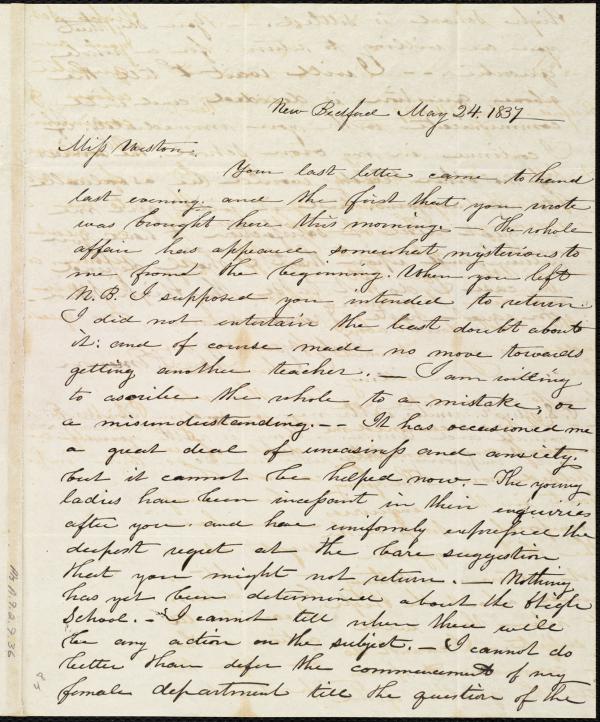 New Bedford May 24. 1837
Miss Weston.
Your last letter came to hand
last evening. and the first that you wrote
was brought here this morning. — The whole
affair has appeared somewhat mysterious to
me from the beginning. When you left
N.B. I supposed you intended to return.
I did not entertain the least doubt about
it: and of course made no move towards
getting another teacher. — I am willing
to ascribe the whole to a mistake, or
a misunderstanding. — It has occasioned me
a great deal of uneasiness and anxiety.
but it cannot be helped now. — The young
ladies have been incessant in their enquiries
after you. and have uniformly expressed the
deepest regret at the bare suggestion
that you might not return. — Nothing
has yet been determined about the High
School. — I cannot tell when there will
be any action on the subject. — I cannot do
better than defer the commencement of my
female department till the question of the
Ms.A.9.2.9.36